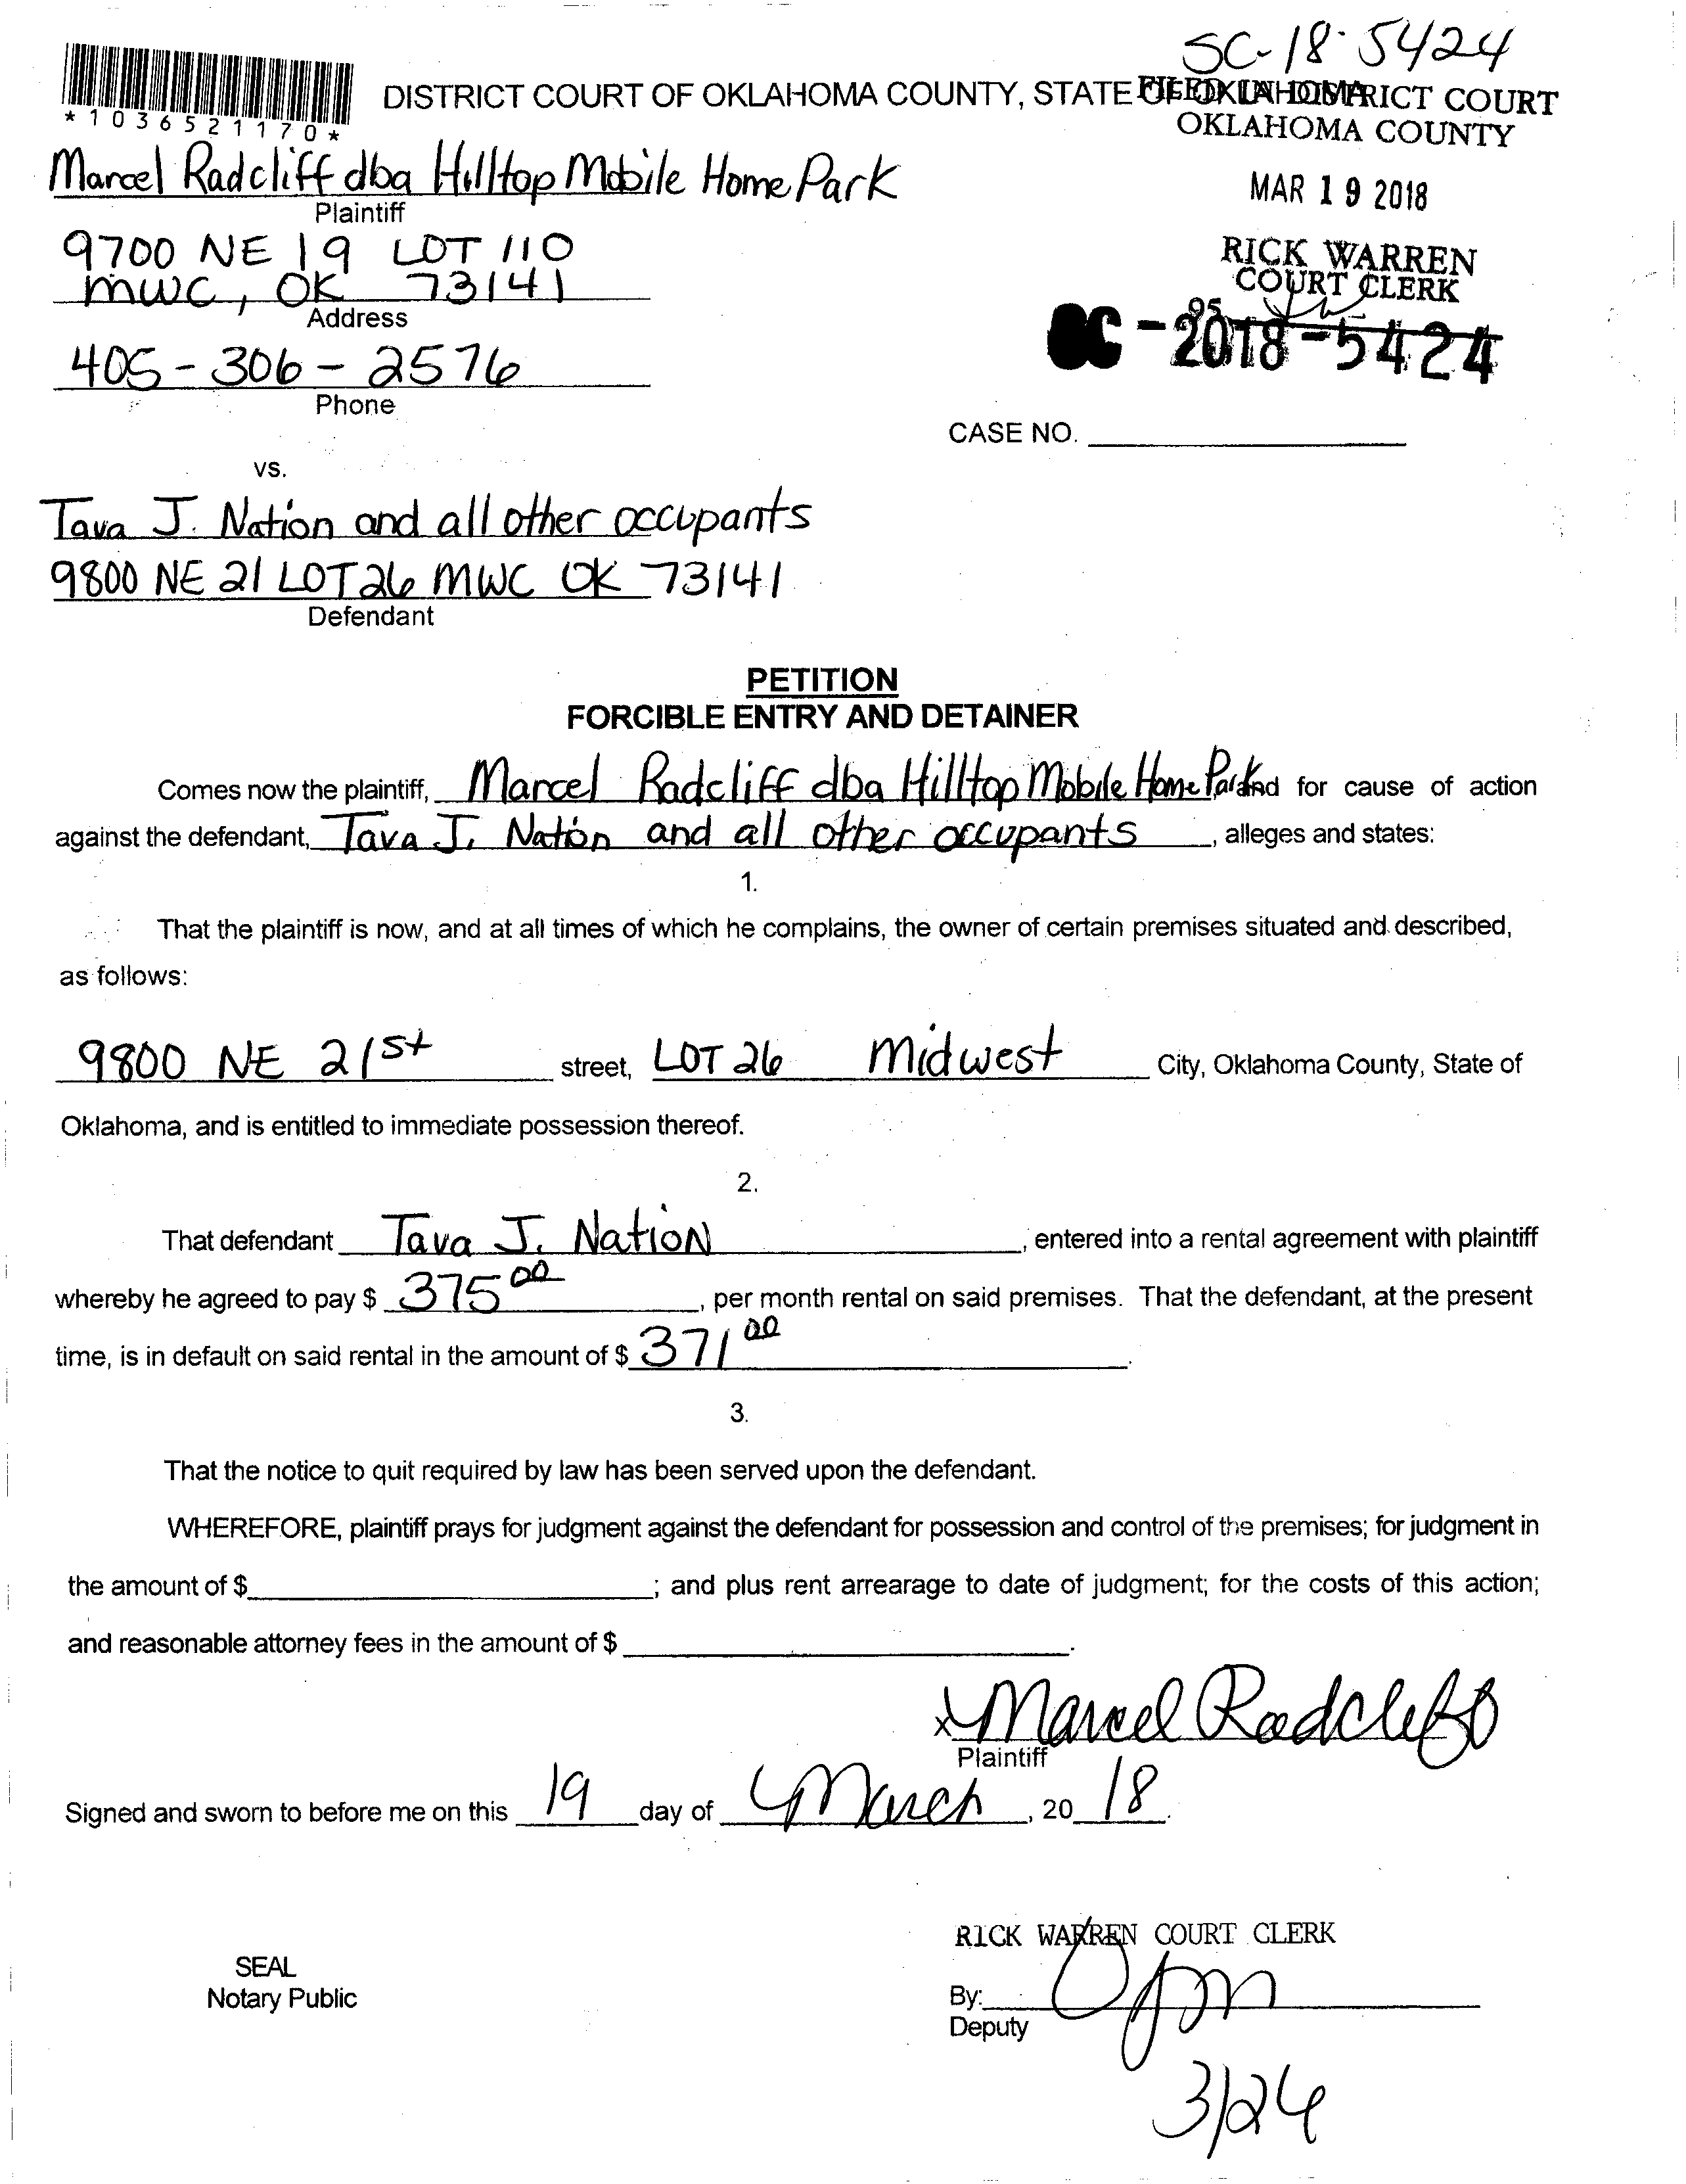 SC-18-5424
*1036521170*
DISTRICT COURT OF OKLAHOMA COUNTY, STATE OF OKLAHOMA
FILED IN DISTRICT COURT
OKLAHOMA COUNTY
MAR 19 2018
RICK WARREN
COURT CLERK
95
SC-2018-5424
Marcel Radcliff dba Hilltop Mobile Home Park
Plaintiff
9700 NE 19 LOT 110
MWC, OK 73141
Address
405-306-2576
Phone
CASE NO.
vs.
Tava J. Nation and all other occupants
9800 NE 21 LOT 26 MWC OK 73141
Defendant
PETITION
FORCIBLE ENTRY AND DETAINER
Comes now the plaintiff, Marcel Radcliff dba Hilltop Mobile Home Park and for cause of action
against the defendant, Tava J. Nation and all other occupants, alleges and states:
1.
That the plaintiff is now, and at all times of which he complains, the owner of certain premises situated and described,
as follows:
9800 NE 21st street, LOT 26 Midwest City, Oklahoma County, State of
Oklahoma, and is entitled to immediate possession thereof.
2.
That defendant Tava J. Nation, entered into a rental agreement with plaintiff
whereby he agreed to pay $ 375 00, per month rental on said premises. That the defendant, at the present
time, is in default on said rental in the amount of $ 371 00.
3.
That the notice to quit required by law has been served upon the defendant.
WHEREFORE, plaintiff prays for judgment against the defendant for possession and control of the premises; for judgment in
the amount of $; and plus rent arrearage to date of judgment; for the costs of this action;
and reasonable attorney fees in the amount of $.
x Marcel Radcliff
Plaintiff
Signed and sworn to before me on this 19 day of March, 20 18.
RICK WARREN COURT CLERK
SEAL
Notary Public
By:
Deputy
3/26